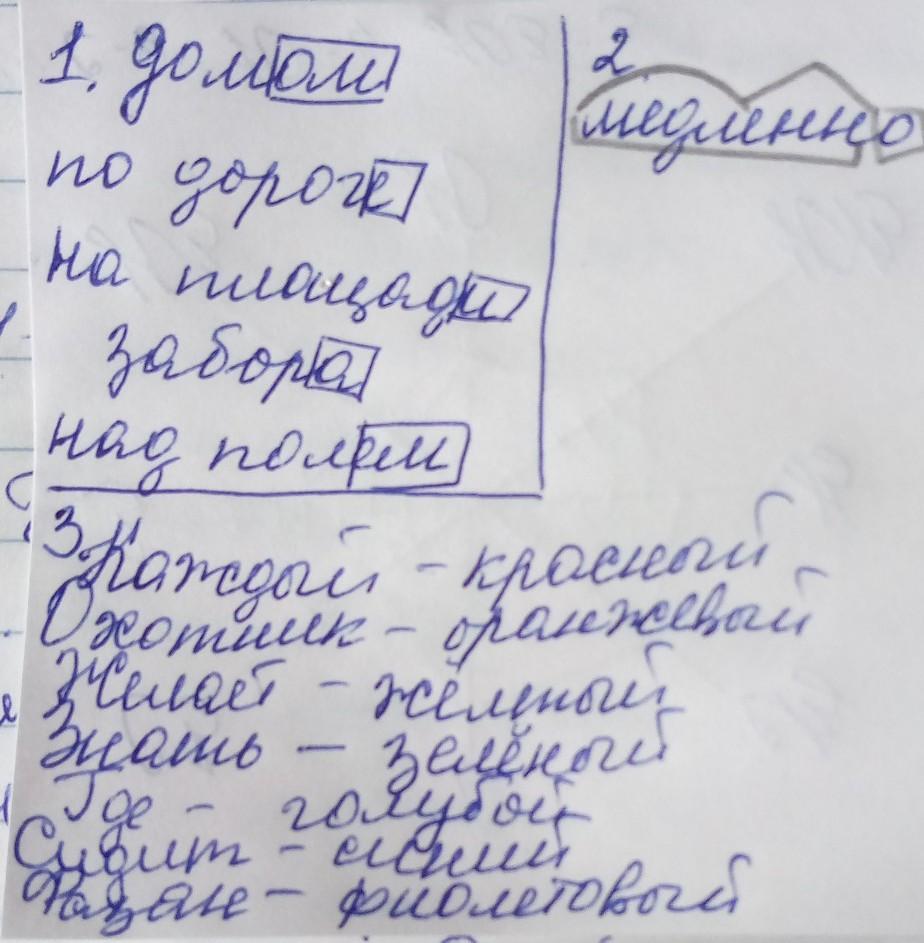 1. домом
по дороге
на площади
забора
над полем
2.
медленно
3.
Каждый - красный
Охотник - оранжевый
Желает - жёлтый
Знать - зелёный
Где - голубой
Сидит - синий
Фазан - фиолетовый